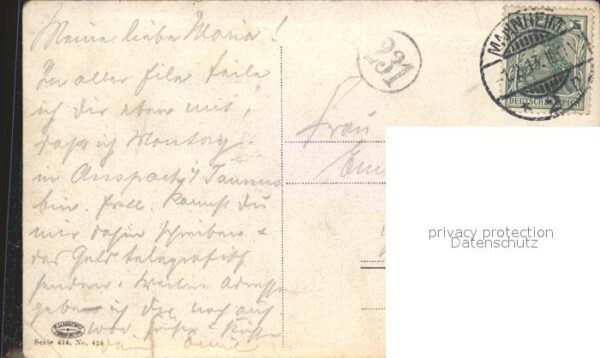 Meine liebe Maria!
In aller Eile teile
ich Dir eben mit,
dass ich Montag
in Anspach i/Taunus
bin. Evtl. kannst Du
mir dahin schreiben &
das Geld telegrafisch
senden. Weitere Adresse
gebe ich Dir noch auf
231
MANNHEIM
DEUTSCHES REICH
Frau
privacy protection
Datenschutz
Serie 414, No. 424